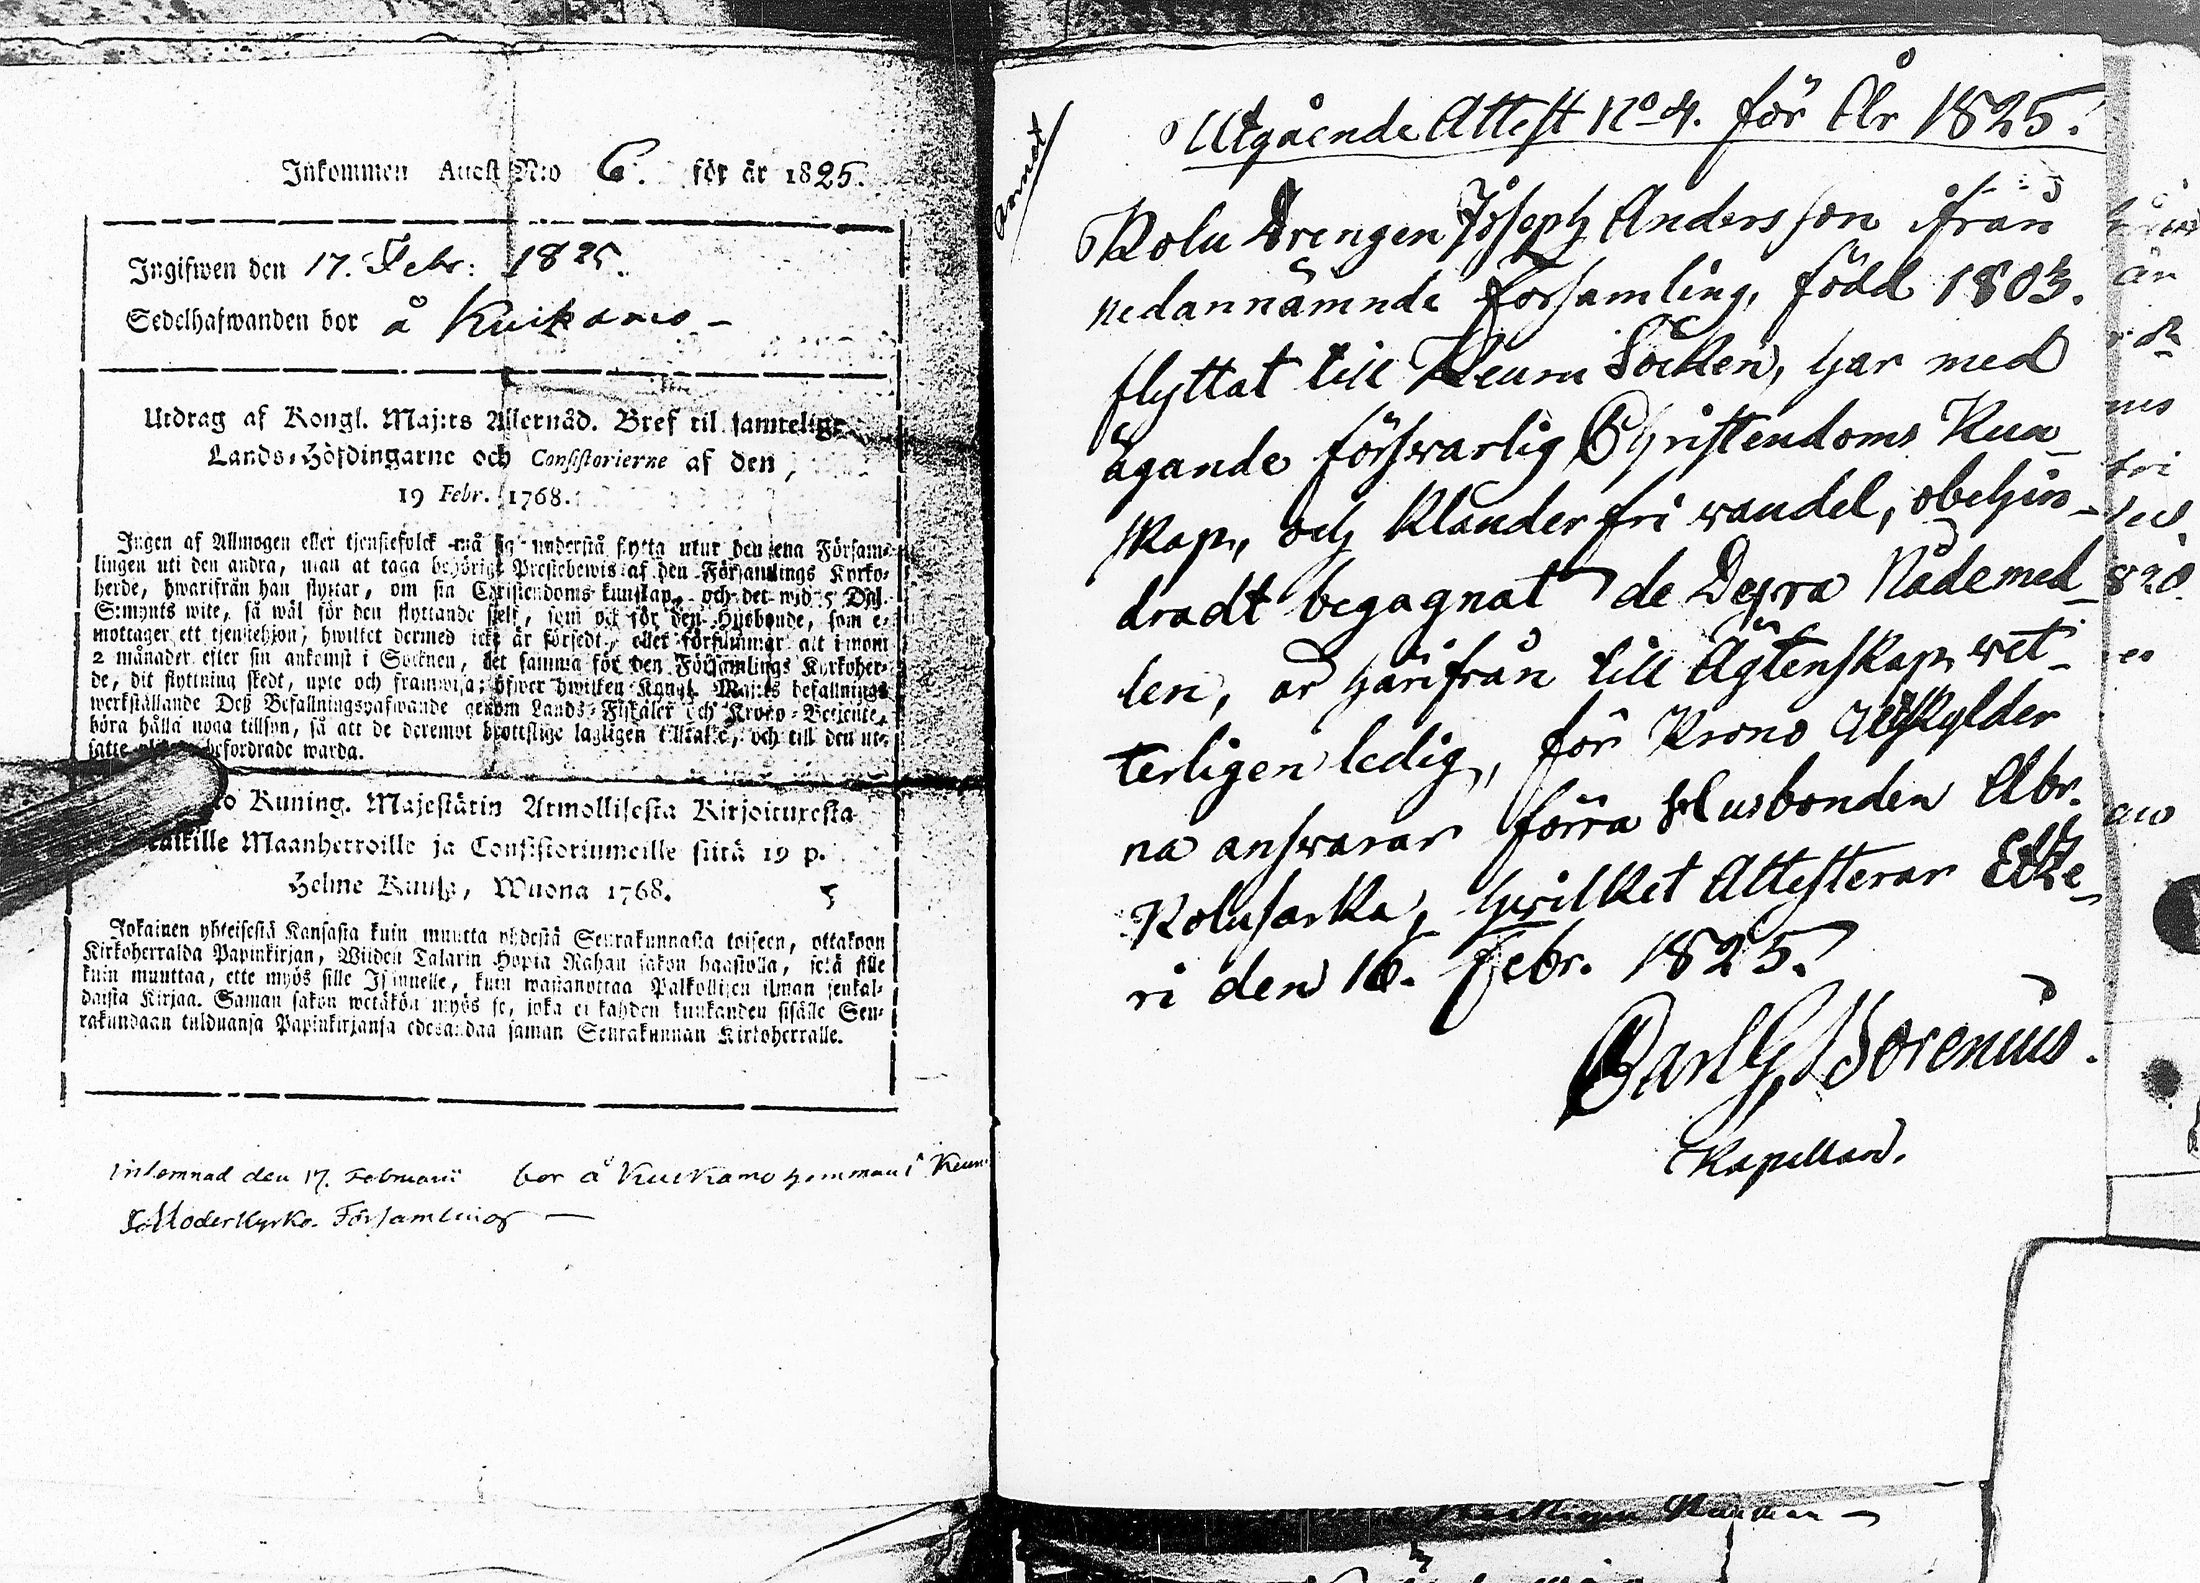 Inkommen Attest N:o 6. för år 1825.
Ingifwen den 17. Febr: 1825.
Sedelhafwanden bor å Kuikamo –
Utdrag af Kongl. Maj:ts Allernåd. Bref til samtelige
Lands-Höfdingarne och Consistorierne af den
19 Febr. 1768.
Ingen af Allmogen eller tjenstefolck må sig understå flytta utur den ena Försam-
lingen uti den andra, utan at taga behörigt Prestebewis af den Församlings Kyrko-
herde, hwarifrån han flyttar, om sin Christendoms kunskap, och det wid 5 Dal.
S:mynts wite, så wäl för den flyttande sjelf, som ock för den Husbonde, som e-
mottager ett tjenstehjon, hwilket dermed icke är försedt, eller försummar att inom
2 månader efter sin ankomst i Socknen, det samma för den Församlings Kyrkoher-
de, dit flyttning skedt, upte och framwisa; öfwer hwilken Kongl. Maj:ts befallnings
werkställande Deß Befallningshafwande genom Lands-Fiskaler och Krono-Betjente,
böra hålla noga tillsyn, så att de deremot brottslige lagligen tilltalte, och till den ut-
satte befordrade warda.
Kuning. Majestätin Armollisesta Kirjoituresta
kaikille Maanherroille ja Consistoriumeille siitä 19 p.
Helme Kuusa, Wuona 1768.
Jokainen yhteisestä Kansasta kuin muutta yhdestä Seurakunnasta toiseen, ottakoon
Kirkoherralda Papinkirjan, Wiiden Talarin Hopia Rahan sakon haastolla, sekä sille
kuin muuttaa, ette myös sille Isännelle, kuin wastanottaa Palkollisen ilman senkal-
daista Kirjaa. Saman sakon wetäkön myös se, joka ei kahden kuukanden sisälle Seu-
rakundaan tulduansa Papinkirjansa edesandaa saman Seurakunnan Kirkoherralle.
Inlemnad den 17. Februarii bor å Kuikamo hemman i Keuru
Moderkyrko Församling —
Annot
Utgående Attest No 4. för År 1825.
Kolu Drengen Joseph Andersson ifrån
nedannämnde församling, född 1803.
flyttat till Keuru Socken, har med
ägande förswarlig Christendoms Kun-
skap, och Klanderfri wandel, obehin-
dradt begagnat de Dyra Nådemed-
len, är härifrån till Ägtenskap wet-
terligen ledig, för Krono Utskylder
na answarar förra Husbonden Abr.
Kolusarka, hwilket Attesterar Etse-
ri den 16. Febr. 1825.
Carl G. Borenius.
Kapellan.